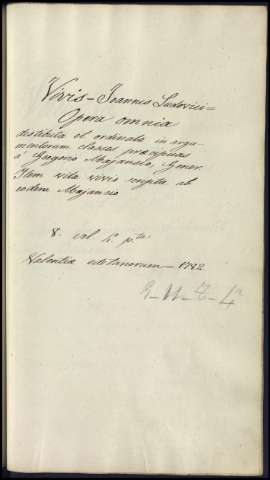 Vivis = Joannis Ludovici =
Opera omnia
distributa et ordinata in argu-
mentorum classes præcipuas
á Gregorio Majansio, Gener.
Item vita vivis scripta ab
eodem Majansio
8. vol
Valentiæ edetanorum — 1782